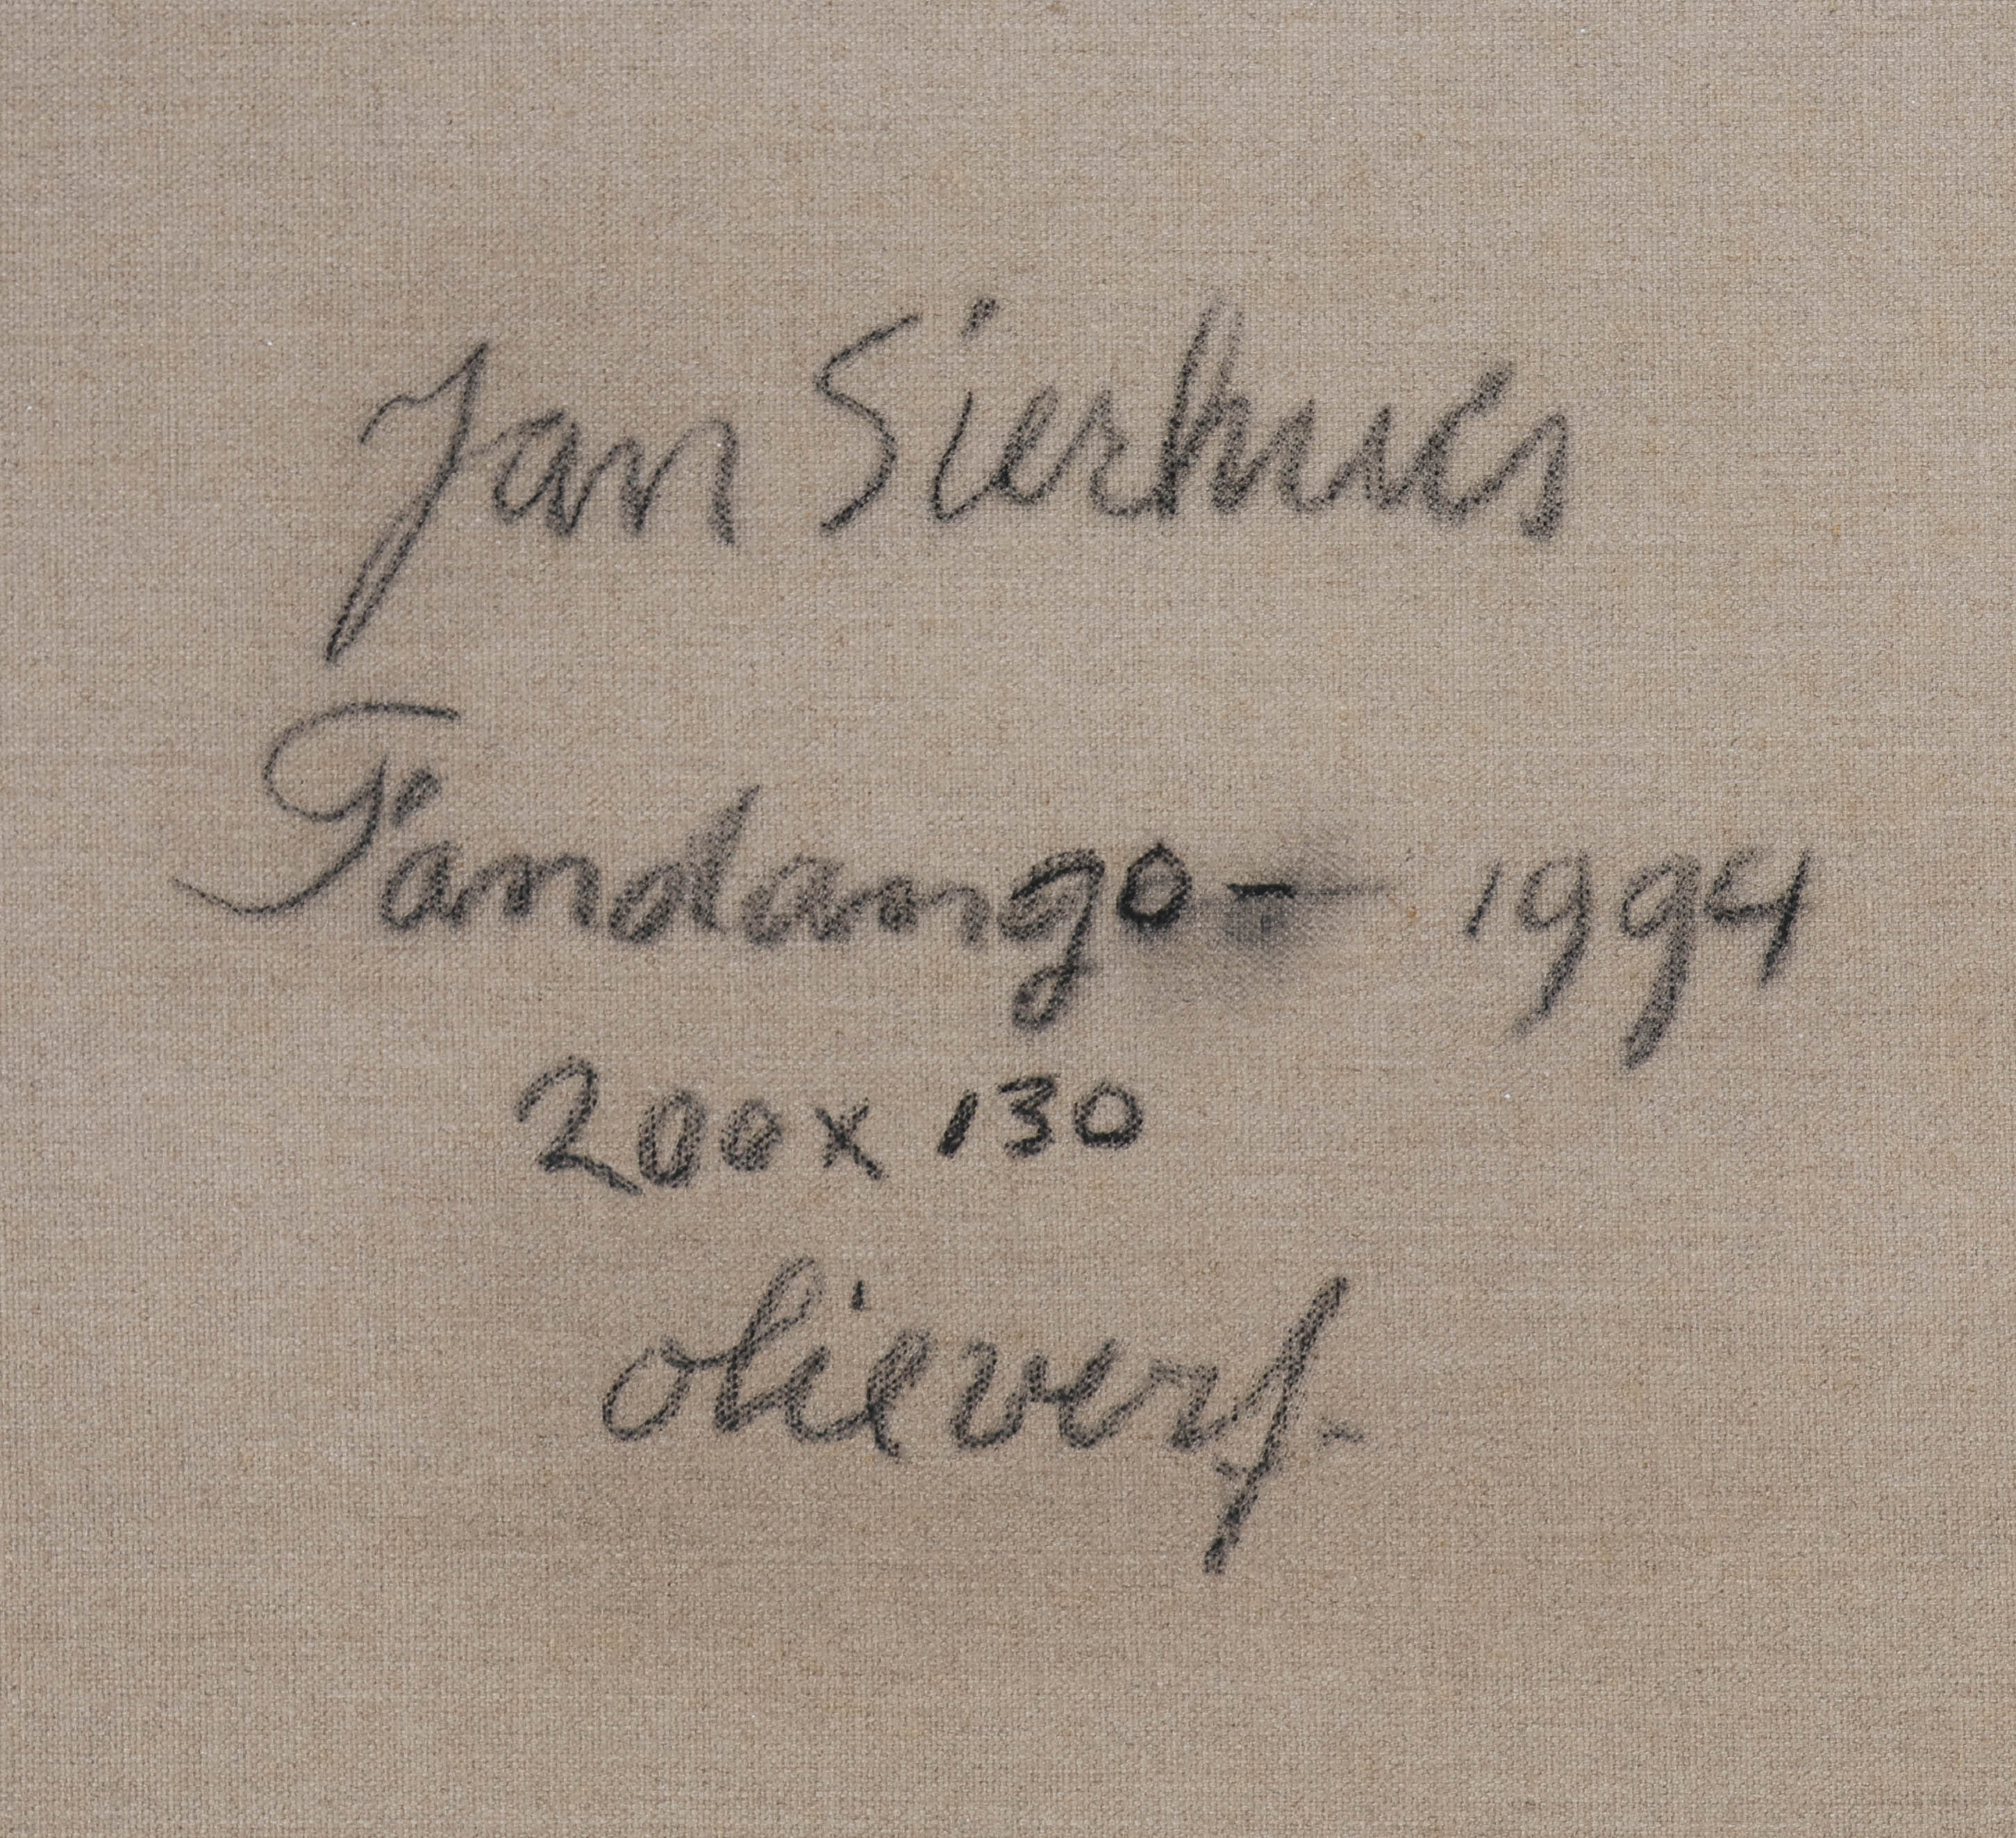 Jan Sierhuis
Fandango — 1994
200 x 130
olieverf.